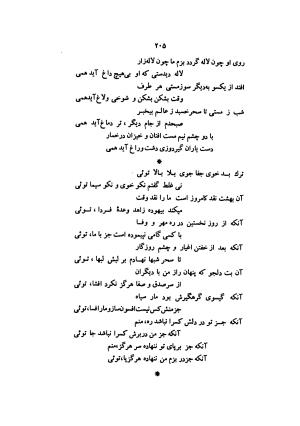 ۲۰۵
روی او چون لاله گردد بزم ما چون لاله‌زار
لاله دیدستی که او بی‌هیچ داغ آید همی
افتد از یکسو به‌دیگر سوز مستی هر طرف
وقت بشکن بشکن و شوخی و لاغ آید همی
شب ز مستی تا سحر خسبد ز عالم بیخبر
صبحدم از جام دیگر، تر دماغ آید همی
با دو چشم نیم مست افتان و خیزان در خمار
دست یاران گیر دوزی دشت و راغ آید همی
*
ترک بد خوی جفا جوی بلا بالا توئی
نی غلط گفتم نکو خوی و نکو سیما توئی
آن بهشت نقد کامروز است ما را نقد وقت
میکند بیهوده زاهد وعدهٔ فردا، توئی
آنکه از روز نخستین در ره مهر و وفا
با کسی گامی نپیموده است جز با ما، توئی
آنکه بعد از خفتن اغیار و چشم روزگار
تا سحر شبها نهادم بر لبش لبها، توئی
آن بت دلجو که پنهان راز من با دیگران
از سر صدق و صفا هرگز نکرد افشا، توئی
آنکه گیسوی گرهگیرش بود مار سیاه
جز منش کس نیست افسون‌ساز و مار افسا، توئی
آنکه جز تو در دلش کسرا نباشد ره، منم
آنکه جز من در برش کسرا نباشد جا توئی
آنکه جز بر پای تو ننهاده سر هرگز، منم
آنکه جز در بزم من ننهاده هرگز پا، توئی
*